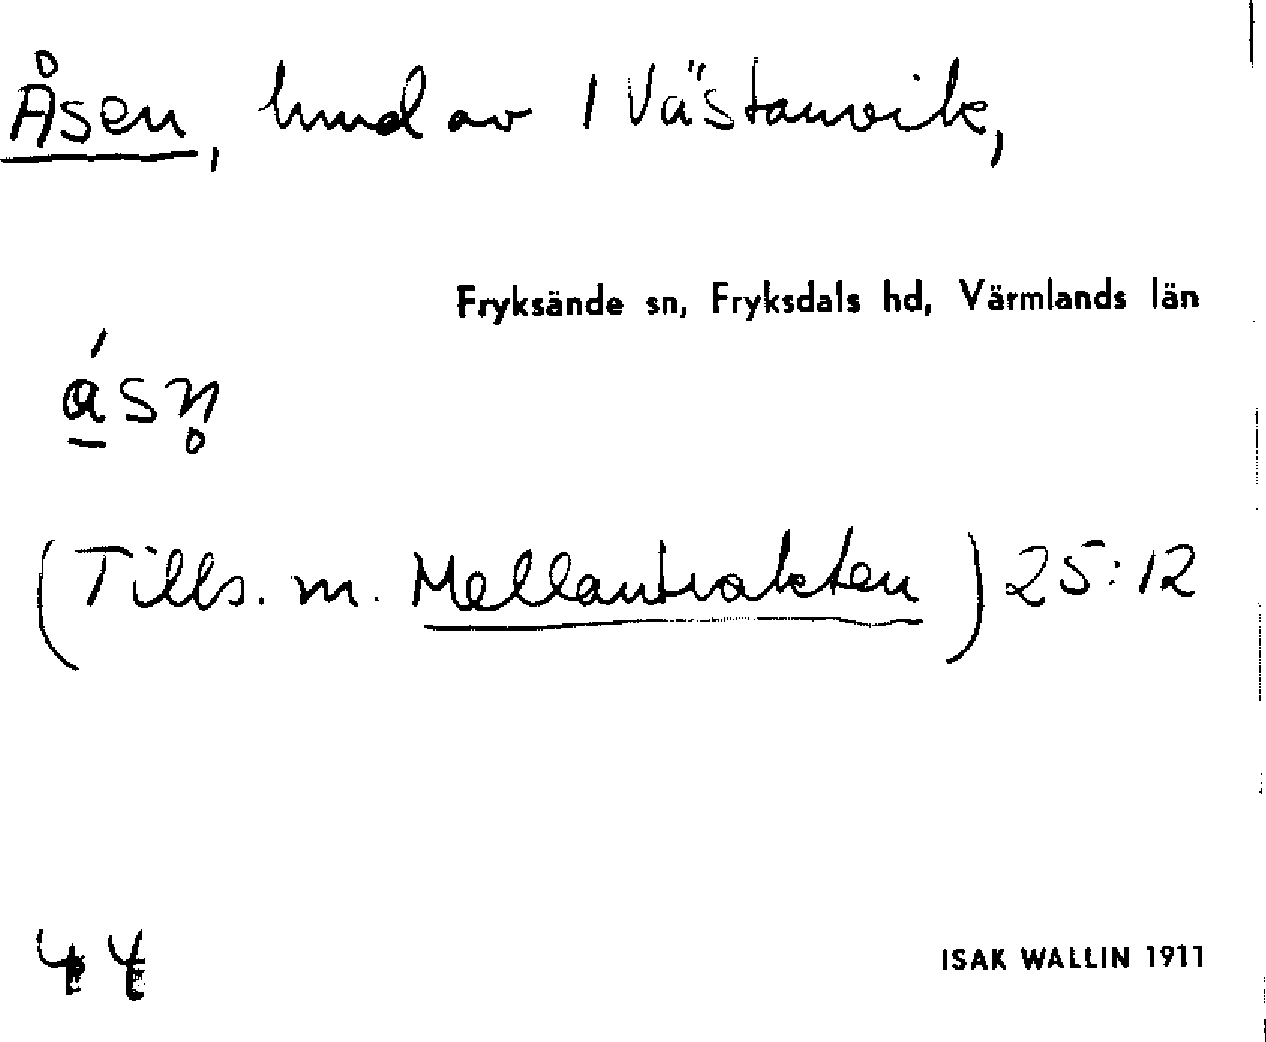 Åsen, hmd av 1 Västanvik,
Fryksände sn, Fryksdals hd, Värmlands län
á̱sn̥
(Tills. m. Mellantrakten) 25:12
44
ISAK WALLIN 1911